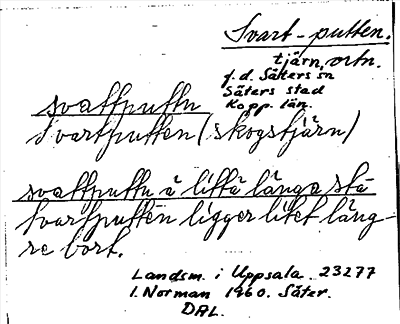 Svart-putten.
tjärn, ortn.
f.d. Säters sn
Säters stad
Kopp. län.
svattputtn
Svartputten (skogstjärn)
svattputtn ä littä längs stä
Svartputten ligger litet läng-
re bort.
Landsm. i Uppsala 23277
I. Norman 1960. Säter.
DAL.